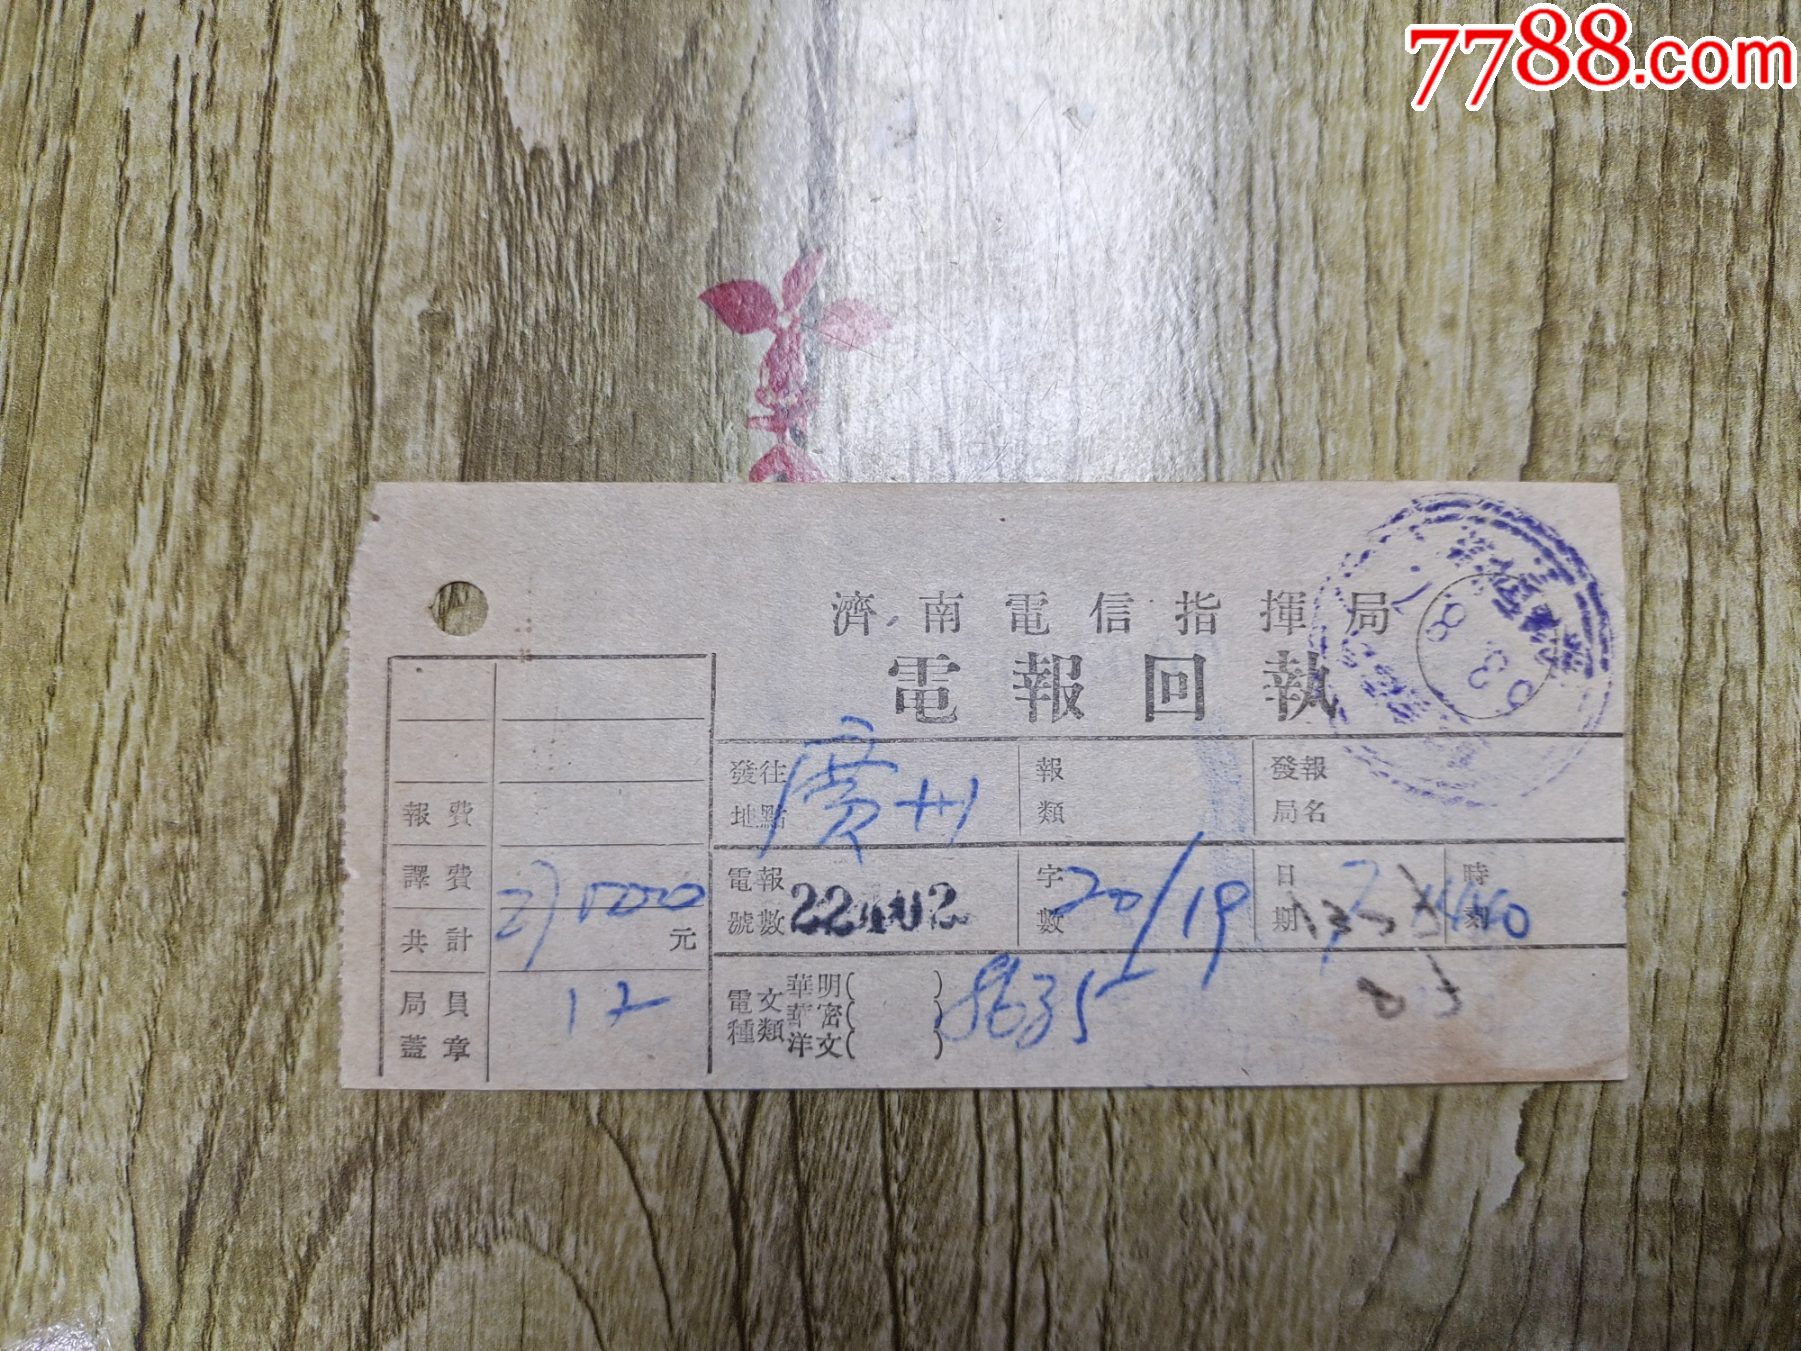 7788.com
濟南電信指揮局
電報回執
發往地點 廣州 報類 發報局名
電報號數 字數 20/19 日期 時刻
電文種類 華明( ) 華密( ) 洋文( ) 8635
報費
譯費
共計 元
局員蓋章 12